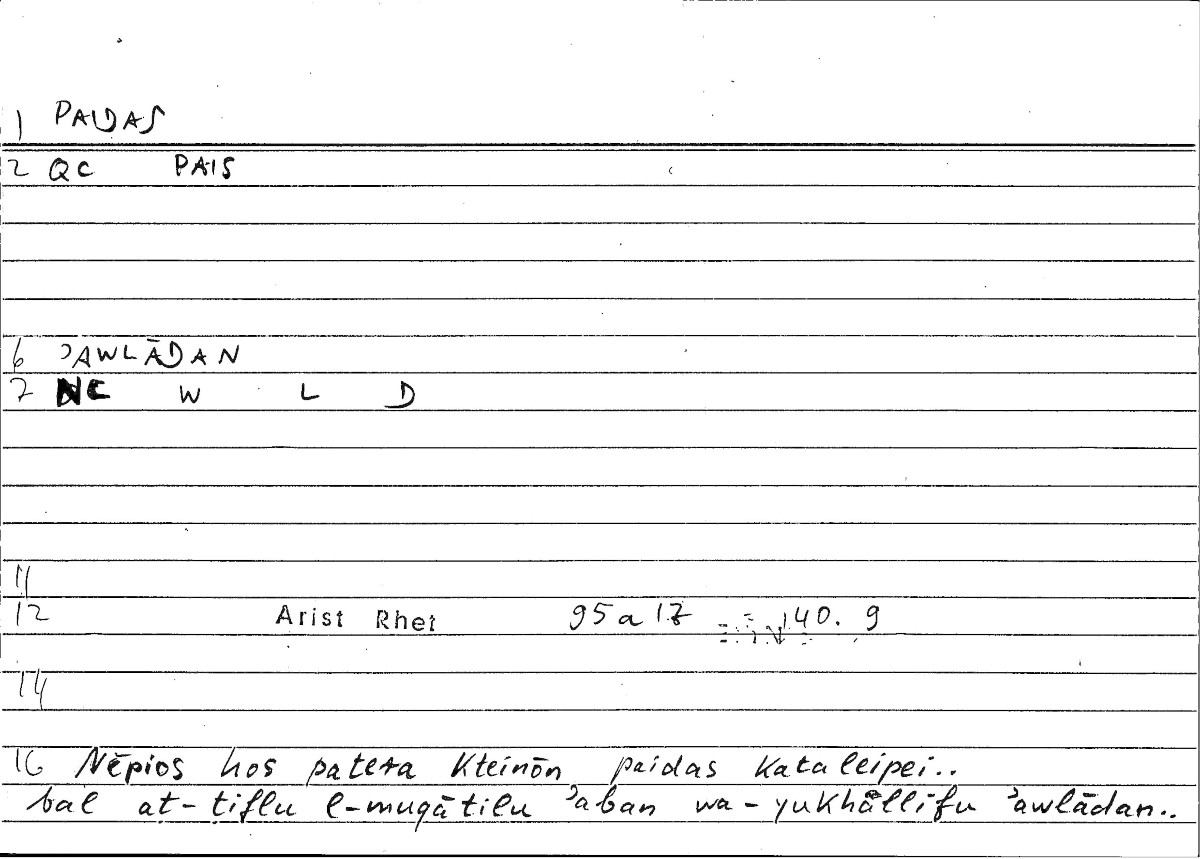 1 PAIDAS
2 QC PAIS
6 ʾAWLĀDAN
7 NC W L D
11
12 Arist Rhet 95a17 140. 9
14
16 Nēpios hos patera kteinōn paidas kataleipei..
bal at-tiflu l-muqātilu ʾaban wa-yukhallifu ʾawlādan..